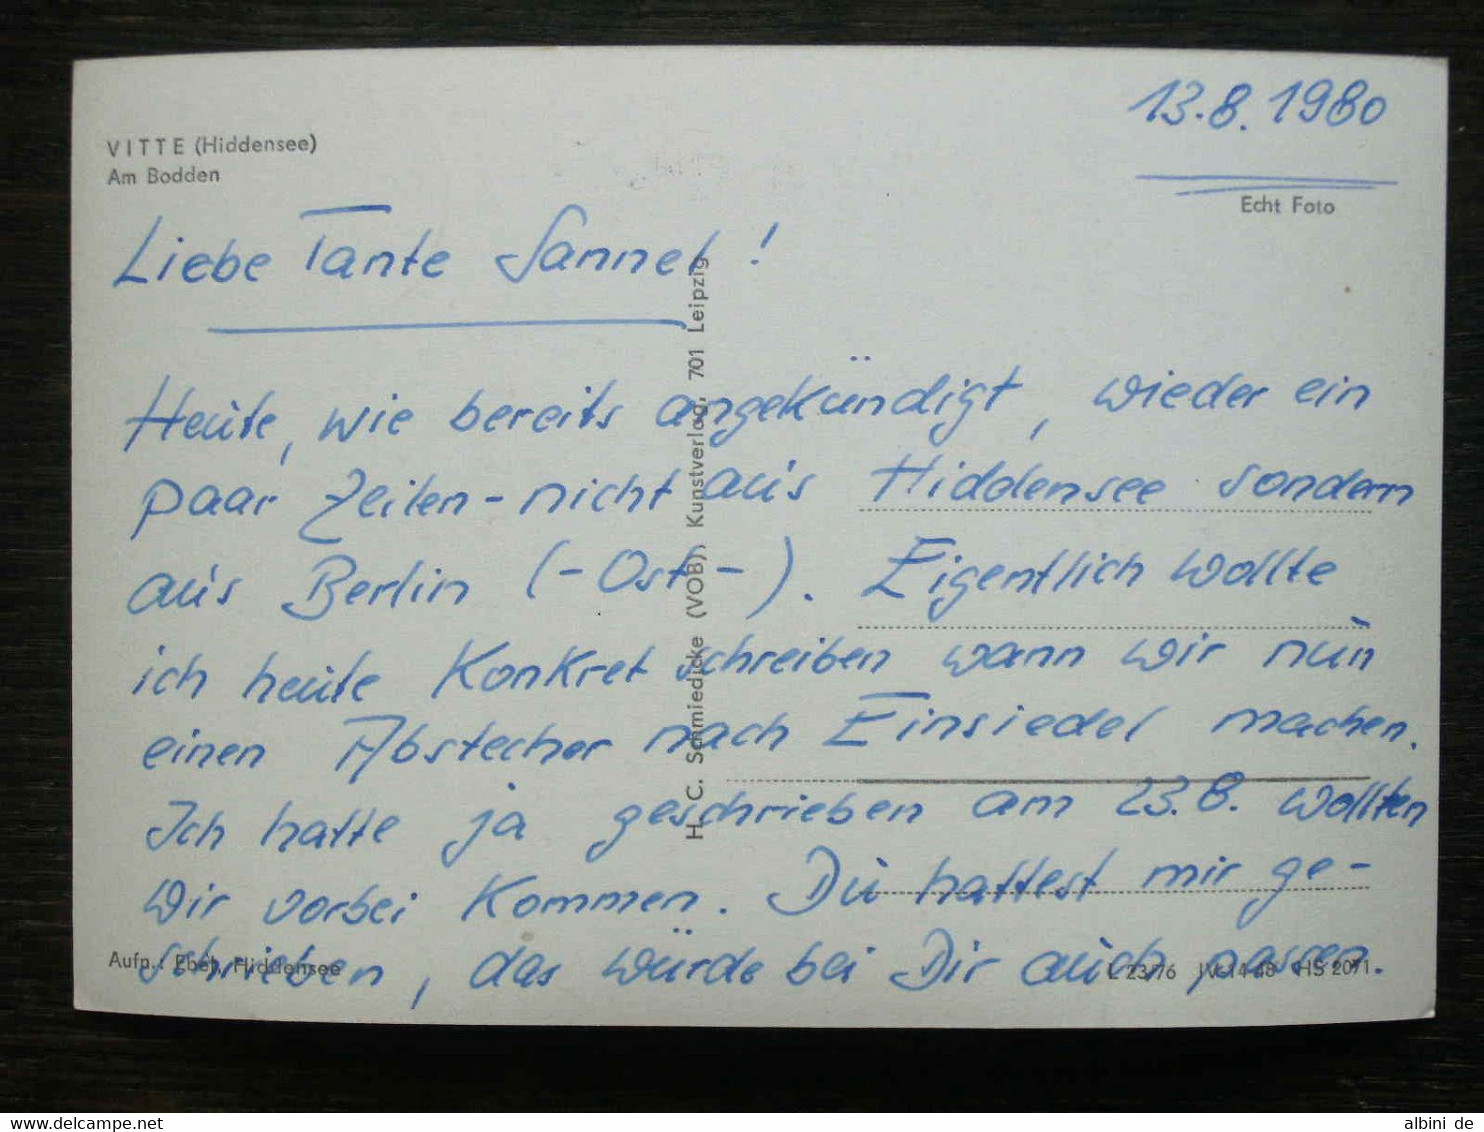 13.8.1980
VITTE (Hiddensee)
Am Bodden
Echt Foto
Liebe Tante Sannel!
Heute, wie bereits angekündigt, wieder ein
paar Zeilen - nicht aus Hiddensee sondern
aus Berlin (-Ost-). Eigentlich wollte
ich heute konkret schreiben wann wir nun
einen Abstecher nach Einsiedel machen.
Ich hatte ja geschrieben am 23.8. wollten
wir vorbei kommen. Du hattest mir ge-
schrieben, das würde bei Dir auch passen.
H. C. Schmiedicke (VOB), Kunstverlag, 701 Leipzig
Aufn.: Ebel, Hiddensee
L 23/76 IV-14-48 HS 2071
delcampe.net
albini de